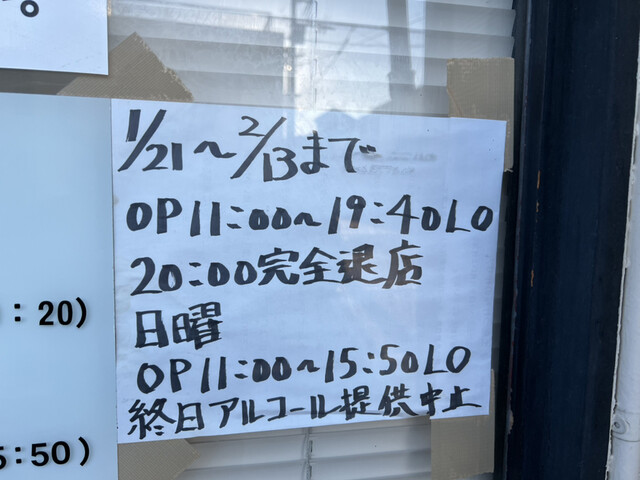 。
1/21〜2/13まで
OP11:00〜19:40LO
20:00完全退店
日曜
OP11:00〜15:50LO
終日アルコール提供中止
:20)
5:50)